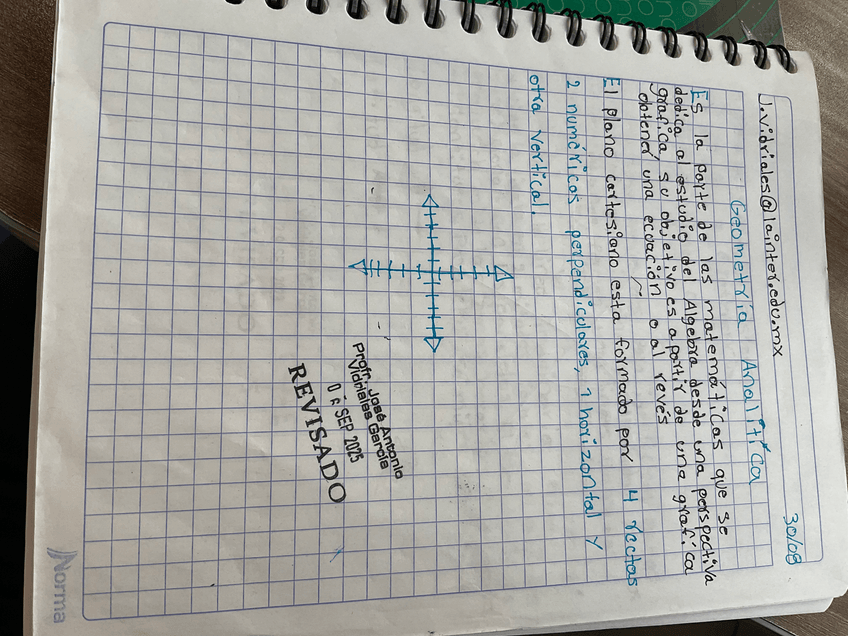 30/08
J.vidriales@lainter.edu.mx
Geometría Analítica
Es la parte de las matemáticas que se
dedica al estudio del Algebra desde una perspectiva
grafica, su objetivo es apartir de una grafica
obtener una ecuación o al revés
El plano cartesiano esta formado por 4 rectas
2 numéricos perpendiculares, 1 horizontal y
otra vertical.
Profr. José Antonio
Vidriales García
06 SEP 2025
REVISADO
Norma